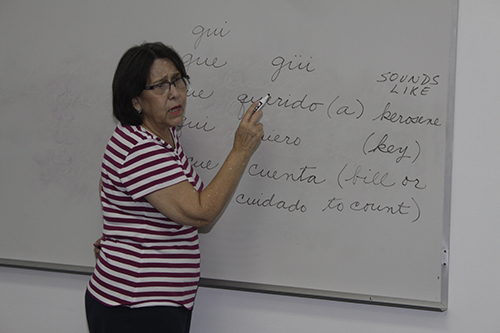 gui
gue güi
SOUNDS
LIKE
querido (a) kerosene
(key)
cuenta (bill or
cuidado to count)